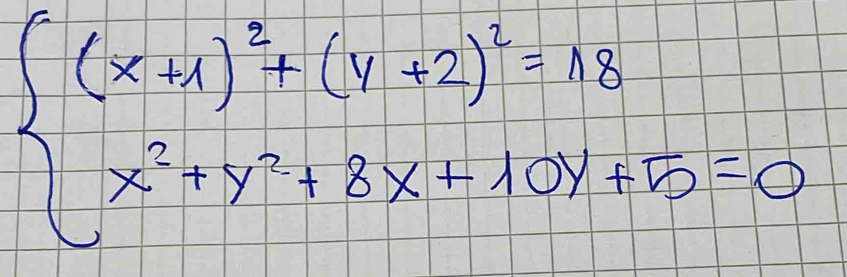 (x+1)² + (y+2)² = 18
x² + y² + 8x + 10y + 5 = 0